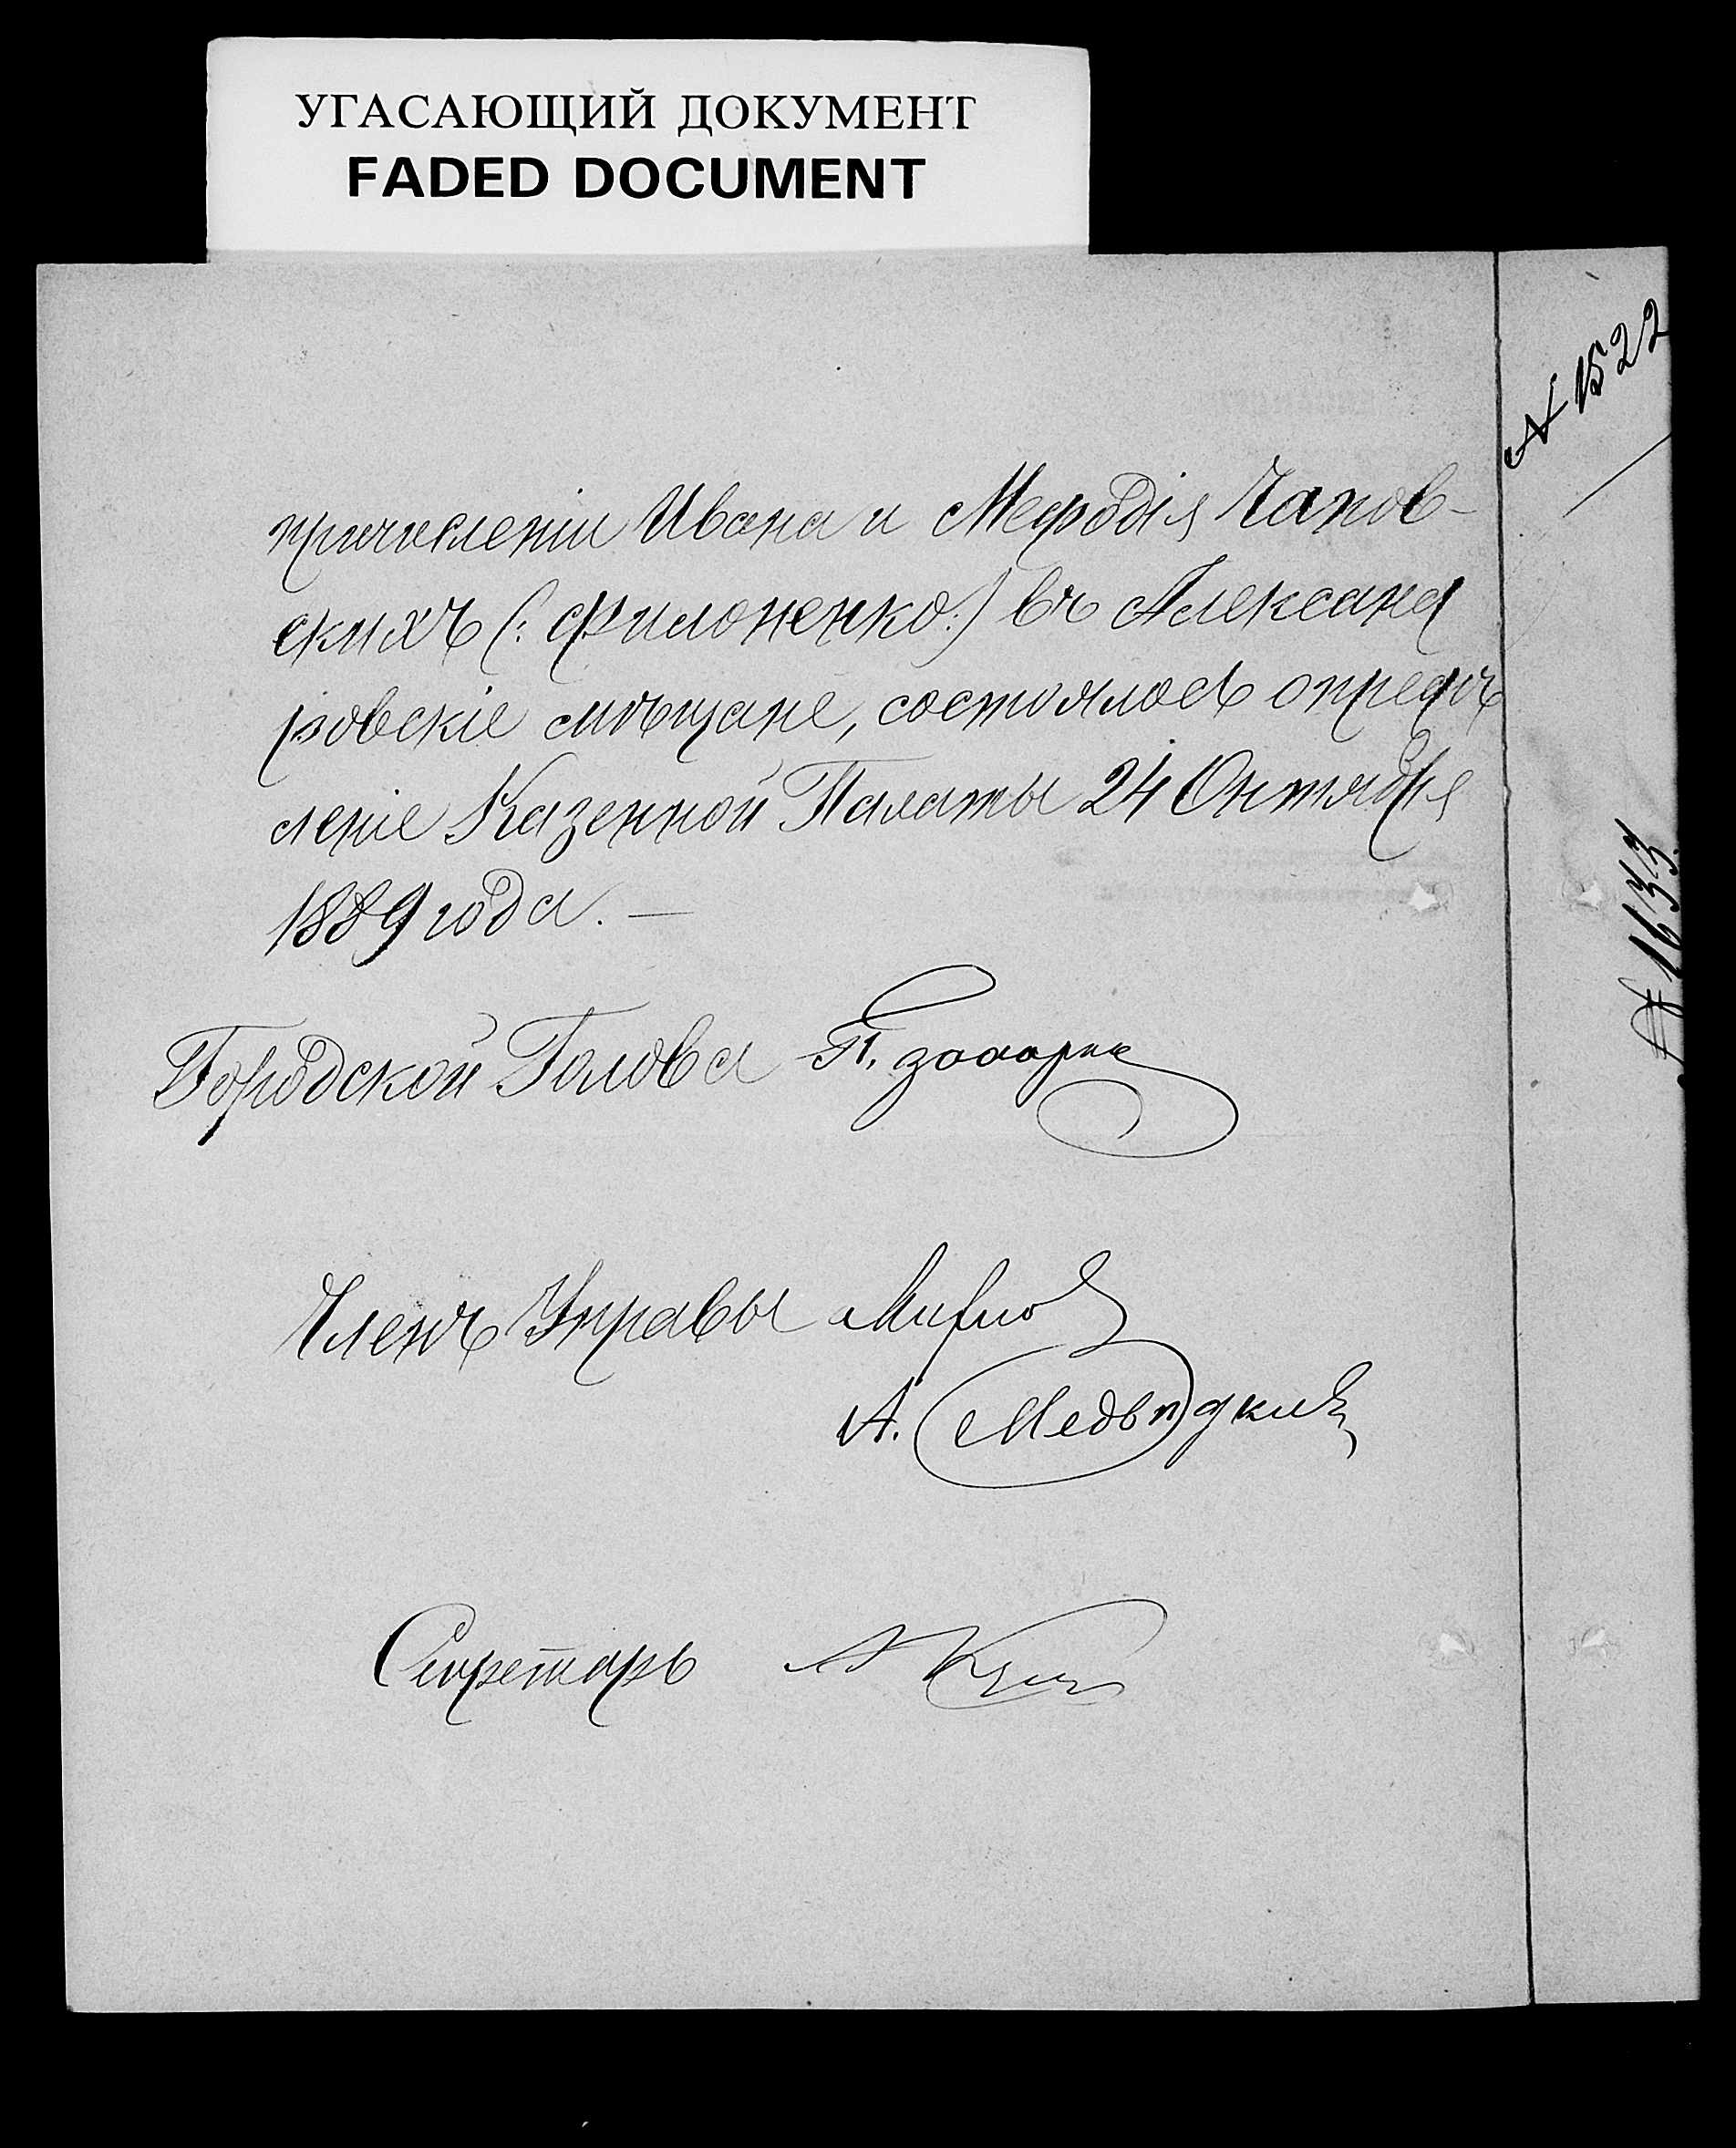 УГАСАЮЩИЙ ДОКУМЕНТ
FADED DOCUMENT
№ 1522
причисленіи Ивана и Мефодія Чапов-
скихъ (: Филоненко :) въ Александ
ровскіе мѣщане, состоялось опредѣ
леніе Казенной Палаты 24 Октября
1889 года. —
№ 1633.
Городской Голова П.
Членъ Управы
А. Медвѣдкинъ
Секретарь А